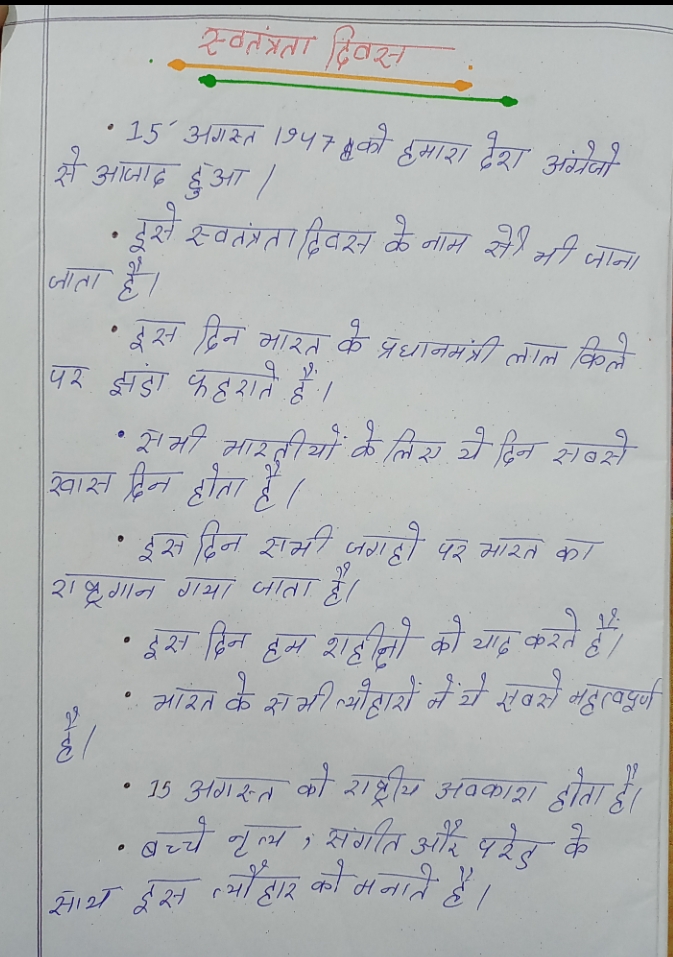 स्वतंत्रता दिवस
• 15 अगस्त 1947 को हमारा देश अंग्रेजो
से आजाद हुआ।
• इसे स्वतंत्रता दिवस के नाम से भी जाना
जाता है।
• इस दिन भारत के प्रधानमंत्री लाल किले
पर झंडा फहराते हैं।
• सभी भारतीयों के लिए ये दिन सबसे
खास दिन होता है।
• इस दिन सभी जगहो पर भारत का
राष्ट्रगान गाया जाता है।
• इस दिन हम शहीदो को याद करते हैं।
• भारत के सभी त्योहारों में ये सबसे महत्वपूर्ण
है।
• 15 अगस्त को राष्ट्रीय अवकाश होता है।
• बच्चे नृत्य, संगीत और परेड के
साथ इस त्यौहार को मनाते है।